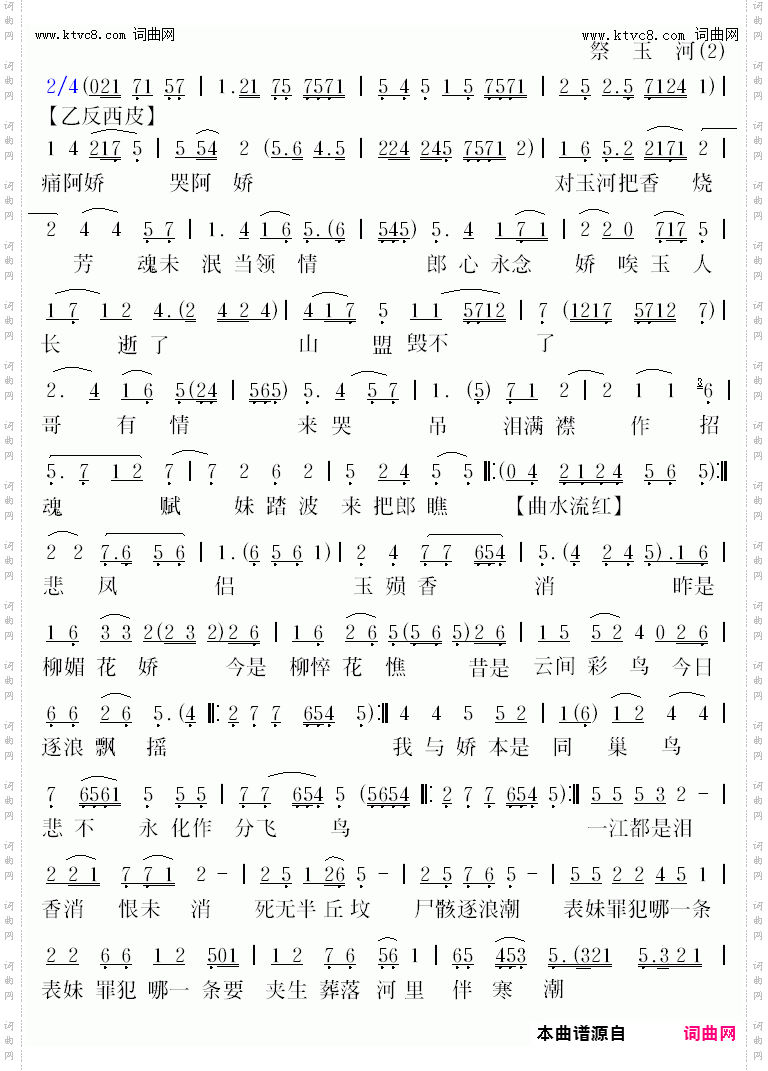 www.ktvc8.com 词曲网 www.ktvc8.com 词曲网
祭 玉 河(2)
2/4(021 71 57 | 1.21 75 7571 | 5 4 5 1 5 7571 | 2 5 2.5 7124 1)|
【乙反西皮】
1 4 217 5 | 5 54 2 (5.6 4.5 | 224 245 7571 2)| 1 6 5.2 2171 2
痛阿娇 哭阿 娇 对玉河把香 烧
2 4 4 5 7 | 1. 4 1 6 5.(6 | 545) 5. 4 1 7 1 | 2 2 0 717 5 |
芳 魂未 泯 当领 情 郎 心 永念 娇 唉 玉 人
1 7 1 2 4.(2 4 2 4)| 4 1 7 5 1 1 5712 | 7 (1217 5712 7)|
长 逝了 山 盟 毁不 了
2. 4 1 6 5(24 | 565) 5. 4 5 7 | 1. (5) 7 1 2 | 2 1 1 3 6 |
哥 有 情 来 哭 吊 泪满 襟 作 招
5. 7 1 2 7 | 7 2 6 2 | 5 2 4 5 5 ‖:(0 4 2124 5 6 5):‖
魂 赋 妹 踏 波 来 把郎 瞧 【曲水流红】
2 2 7.6 5 6 | 1.(6 5 6 1)| 2 4 7 7 654 | 5.(4 2 4 5).1 6 |
悲 凤 侣 玉 殒 香 消 昨是
1 6 3 3 2(2 3 2)2 6 | 1 6 2 6 5(5 6 5)2 6 | 1 5 5 2 4 0 2 6 |
柳媚 花 娇 今是 柳悴 花 憔 昔是 云间 彩 鸟 今日
6 6 2 6 5.(4 ‖: 2 7 7 654 5):‖ 4 4 5 5 2 | 1(6) 1 2 4 4 |
逐浪 飘 摇 我 与 娇 本是 同 巢 鸟
7 6561 5 5 5 | 7 7 654 5 (5654 ‖: 2 7 7 654 5):‖ 5 5 5 3 2 - |
悲 不 永 化作 分飞 鸟 一江都是泪
2 2 1 7 7 1 2 - | 2 5 1 26 5 - | 2 5 7 6 5 - | 5 5 2 2 4 5 1 |
香消 恨未 消 死无半 丘 坟 尸骸逐浪潮 表妹罪犯哪一条
2 2 6 6 1 2 501 | 1 2 7 6 56 1 | 65 453 5.(321 5.321 |
表妹 罪犯 哪一 条要 夹生 葬落 河 里 伴 寒 潮
本曲谱源自 词曲网